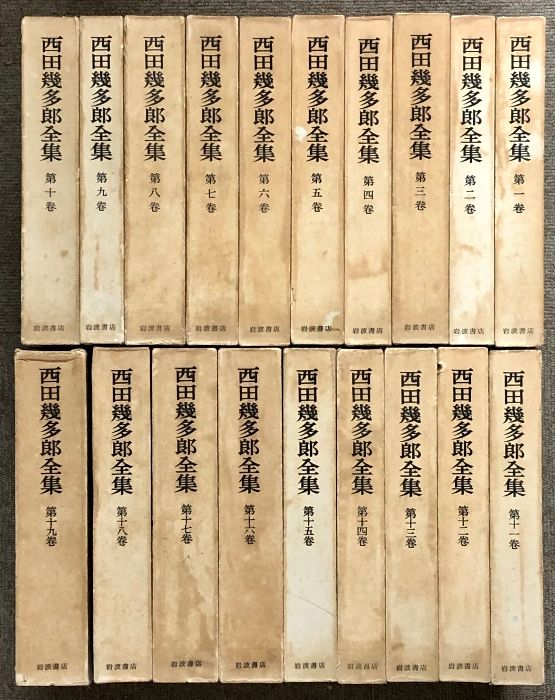 西田幾多郎全集 第一卷 岩波書店
西田幾多郎全集 第二卷 岩波書店
西田幾多郎全集 第三卷 岩波書店
西田幾多郎全集 第四卷 岩波書店
西田幾多郎全集 第五卷 岩波書店
西田幾多郎全集 第六卷 岩波書店
西田幾多郎全集 第七卷 岩波書店
西田幾多郎全集 第八卷 岩波書店
西田幾多郎全集 第九卷 岩波書店
西田幾多郎全集 第十卷 岩波書店
西田幾多郎全集 第十一卷 岩波書店
西田幾多郎全集 第十二卷 岩波書店
西田幾多郎全集 第十三卷 岩波書店
西田幾多郎全集 第十四卷 岩波書店
西田幾多郎全集 第十五卷 岩波書店
西田幾多郎全集 第十六卷 岩波書店
西田幾多郎全集 第十七卷 岩波書店
西田幾多郎全集 第十八卷 岩波書店
西田幾多郎全集 第十九卷 岩波書店